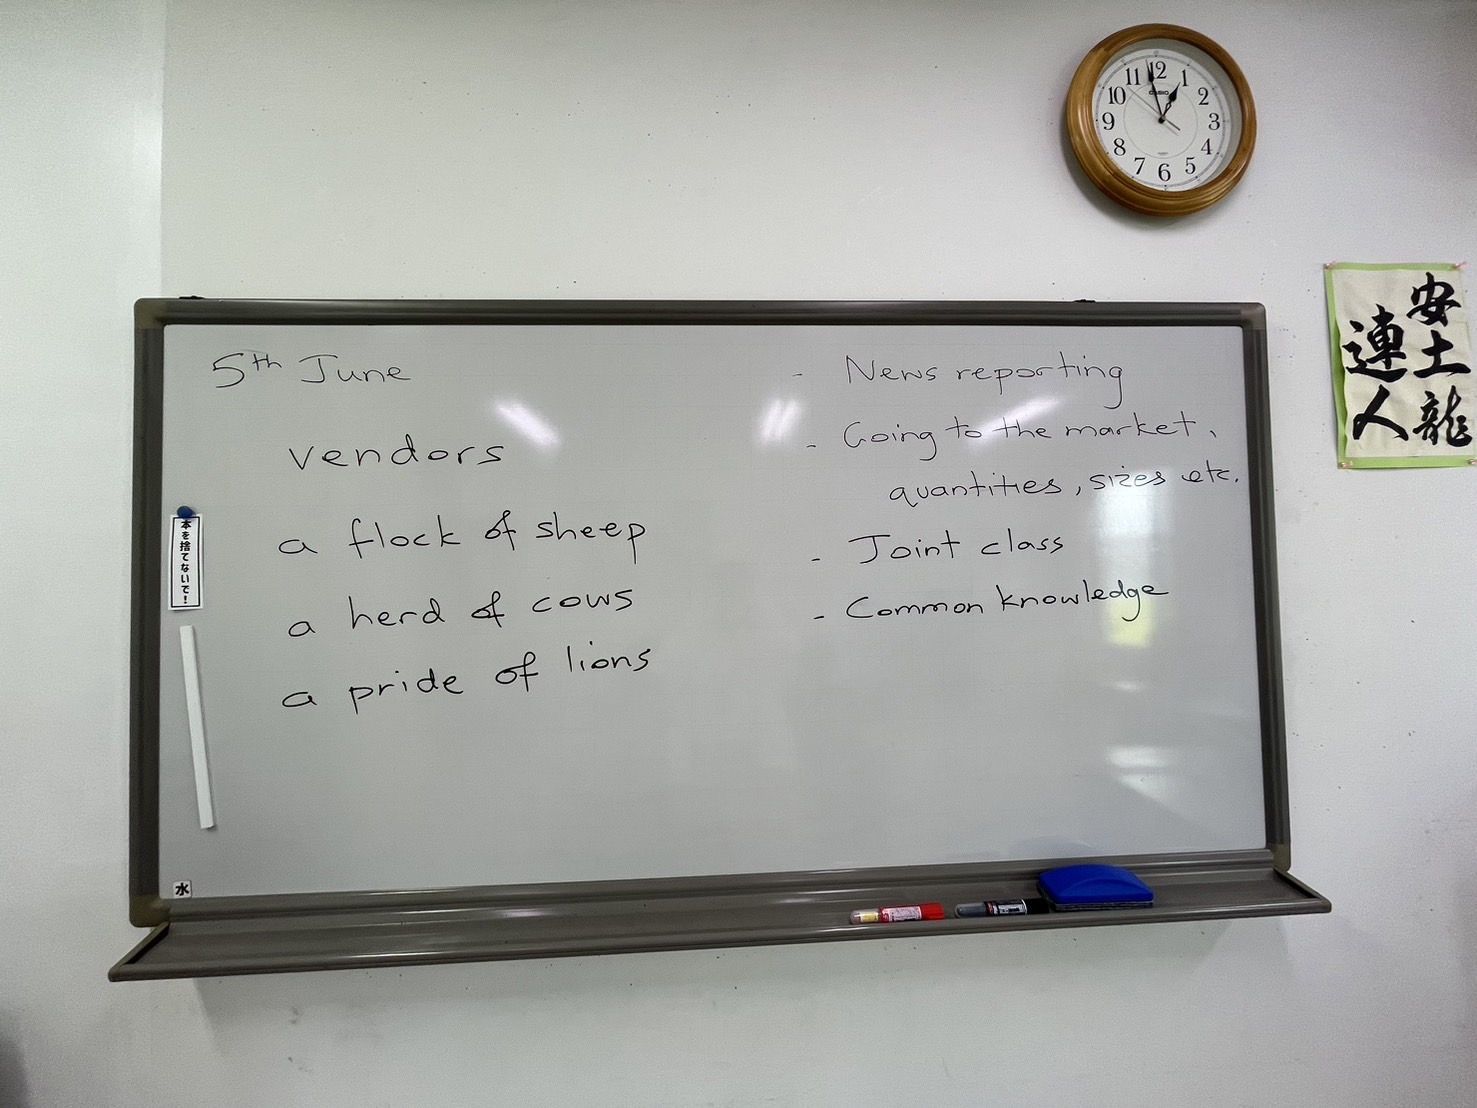 5th June
vendors
a flock of sheep
a herd of cows
a pride of lions
- News reporting
- Going to the market,
quantities, sizes etc.
- Joint class
- Common knowledge
本を捨てないで!
水
11 12 1
10 2
9 3
8 4
7 6 5
CASIO
安土龍
連人